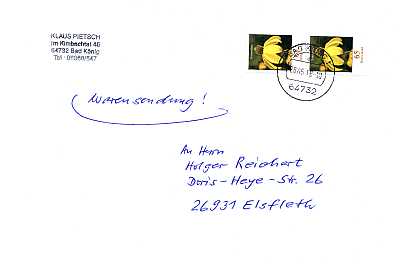 KLAUS PIETSCH
Im Kimbachtal 46
64732 Bad König
Tel.: 06066/547
65
64732
Warensendung!
An Herrn
Holger Reichert
Doris-Heye-Str. 26
26931 Elsfleth